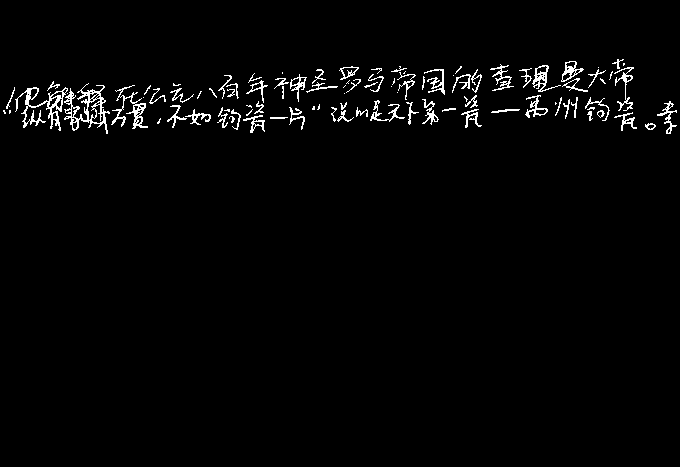 死公元八百年神圣罗马帝国的查理曼大帝
"纵有家财万贯,不如钧瓷一片"说的是天下第一瓷—禹州钧瓷。素